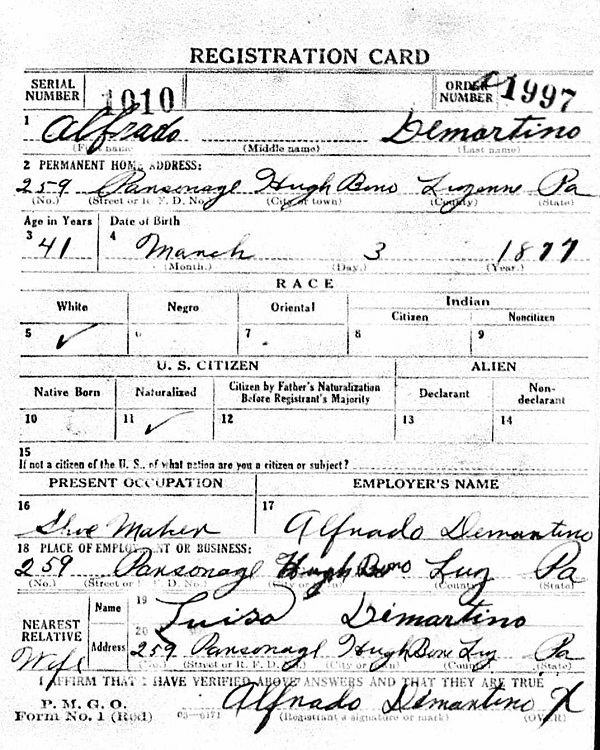 REGISTRATION CARD
SERIAL NUMBER 1010 ORDER NUMBER 1997
1 Alfrado Demartino
(First name) (Middle name) (Last name)
2 PERMANENT HOME ADDRESS:
259 Parsonage Hugh Bono Luzerne Pa
(No.) (Street or R. F. D. No.) (City or town) (County) (State)
Age in Years Date of Birth
3 41 4 March 3 1877
(Month.) (Day.) (Year.)
RACE
White Negro Oriental Indian
Citizen Noncitizen
5 ✓ 6 7 8 9
U. S. CITIZEN ALIEN
Native Born Naturalized Citizen by Father's Naturalization Before Registrant's Majority Declarant Non-declarant
10 11 ✓ 12 13 14
15
If not a citizen of the U. S., of what nation are you a citizen or subject?
PRESENT OCCUPATION EMPLOYER'S NAME
16 Shoe Maker 17 Alfrado Demartino
18 PLACE OF EMPLOYMENT OR BUSINESS:
259 Parsonage Hugh Bono Luz Pa
(No.) (Street or R. F. D. No.) (City or town) (County) (State)
NEAREST RELATIVE Name 19 Luisa Demartino
Wife Address 20 259 Parsonage Hugh Bono Luz Pa
(No.) (Street or R. F. D. No.) (City or town) (County) (State)
I AFFIRM THAT I HAVE VERIFIED ABOVE ANSWERS AND THAT THEY ARE TRUE
P. M. G. O.
Form No. 1 (Red) 03-6171 Alfrado Demartino X
(Registrant's signature or mark) (OVER)